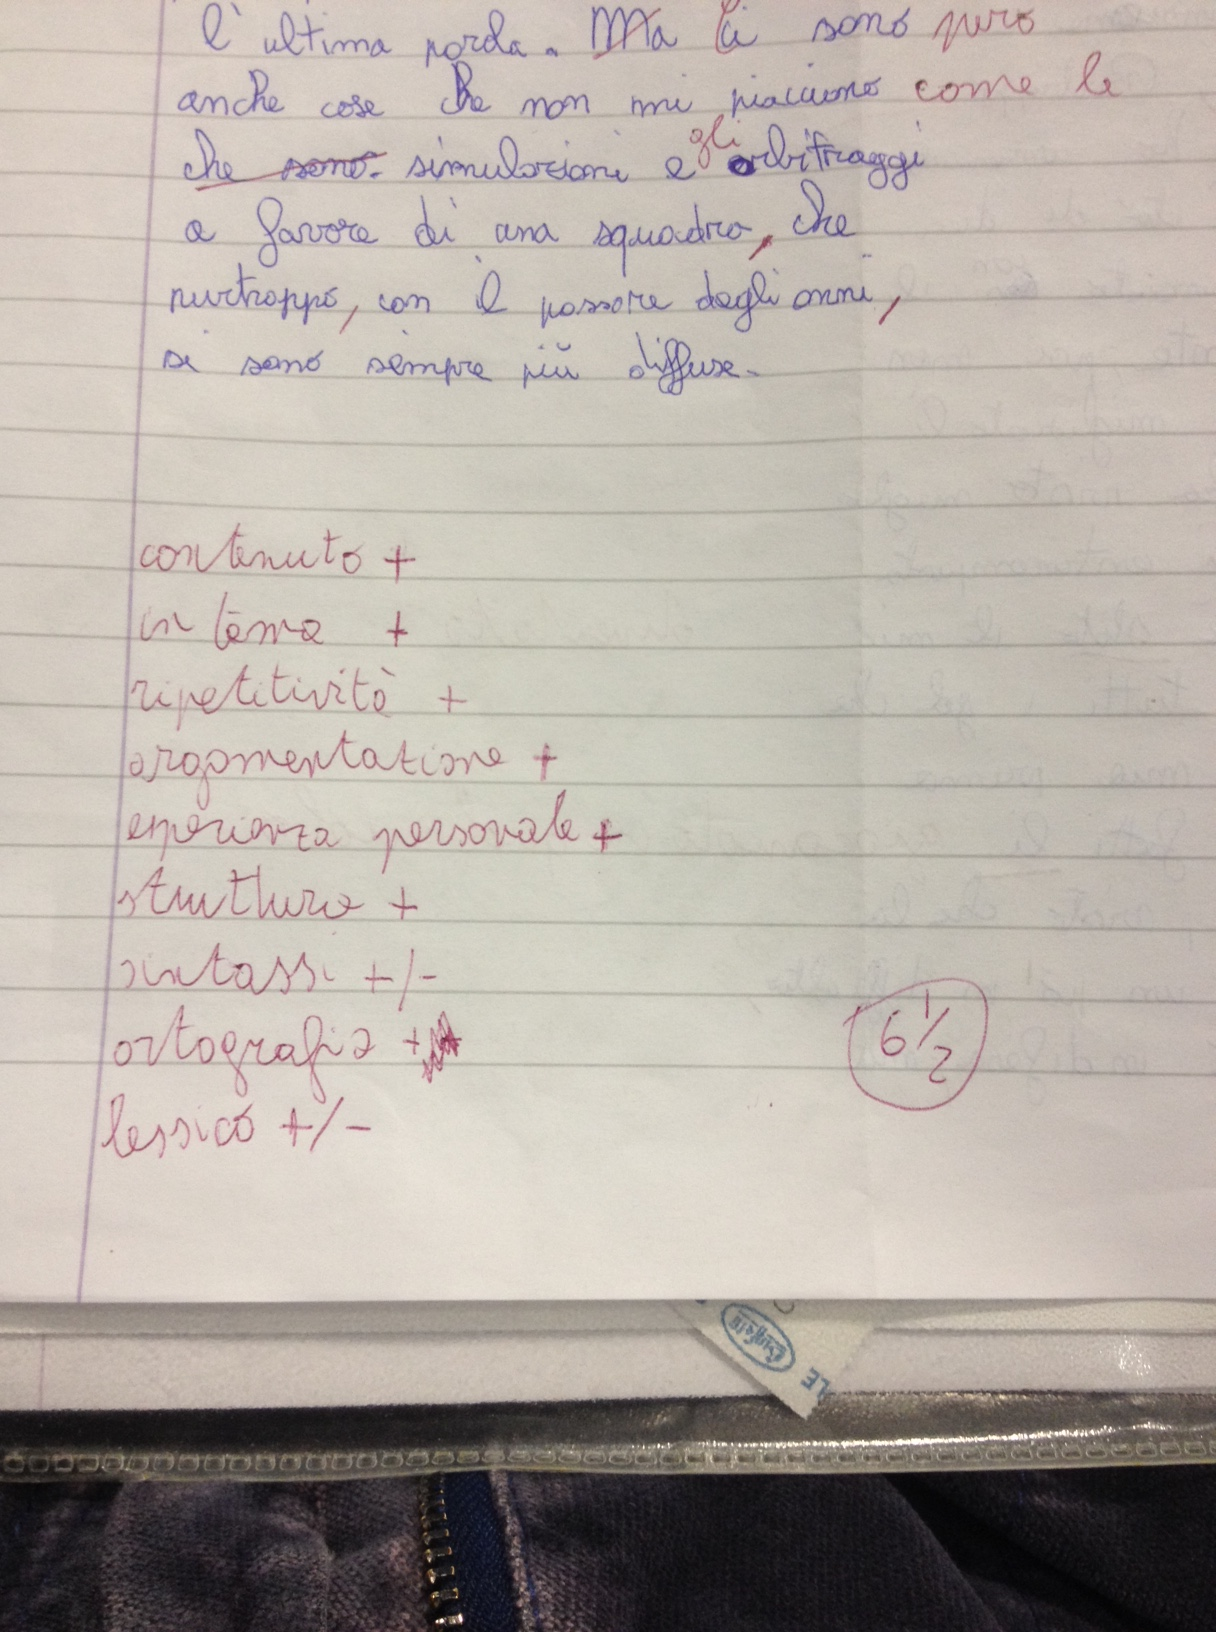 l'ultima parola. Ma Ci sono però
anche cose che non mi piacciono come le
che sono simulazioni e gli arbitraggi
a favore di una squadra, che
purtroppo, con il passare degli anni,
si sono sempre più diffuse.
contenuto +
in tema +
ripetitività +
argomentazione +
esperienza personale +
struttura +
sintassi +/-
ortografia +
lessico +/-
6 1/2